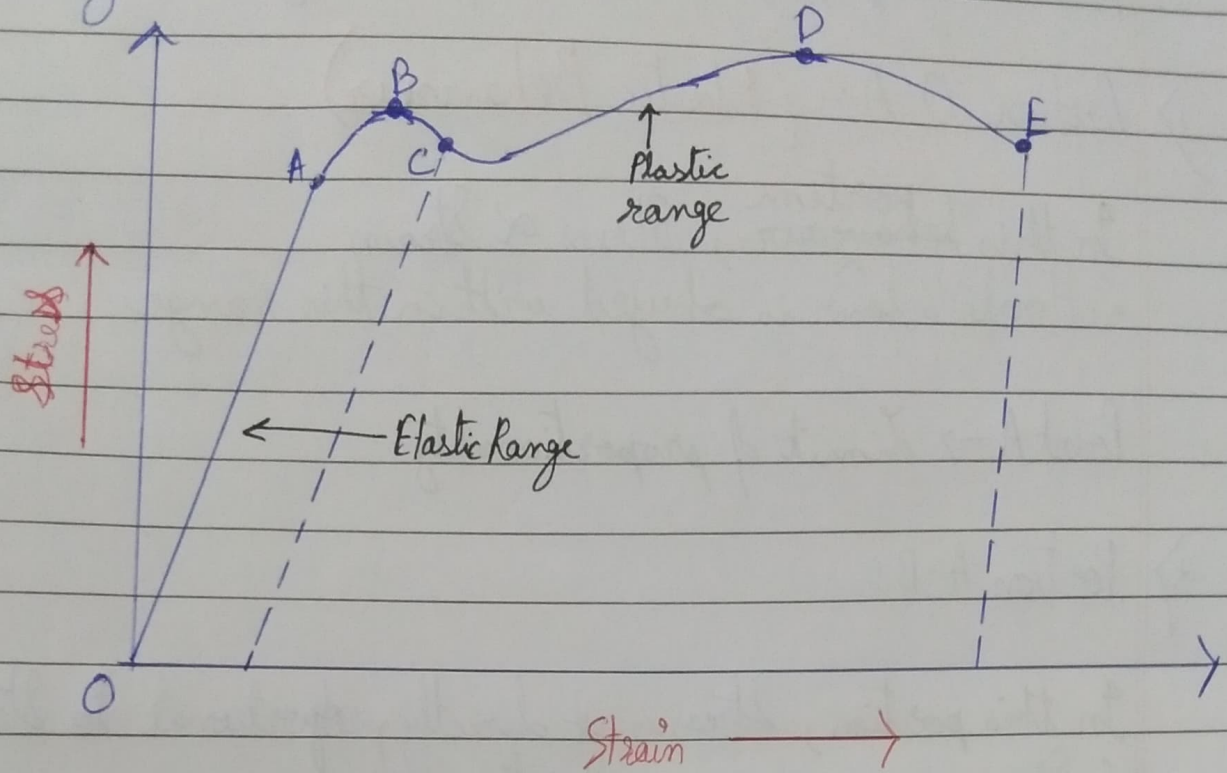 D
B
E
A
C
Plastic
range
Stress
Elastic Range
O
Strain